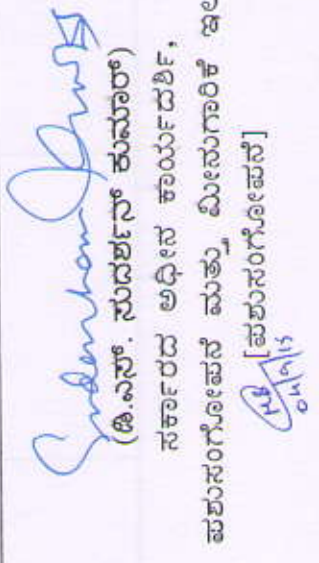 (ಡಿ.ಎಸ್. ಸುದರ್ಶನ್ ಕುಮಾರ್)
ಸರ್ಕಾರದ ಅಧೀನ ಕಾರ್ಯದರ್ಶಿ,
ಪಶುಸಂಗೋಪನೆ ಮತ್ತು ಮೀನುಗಾರಿಕೆ ಇಲ
[ಪಶುಸಂಗೋಪನೆ]